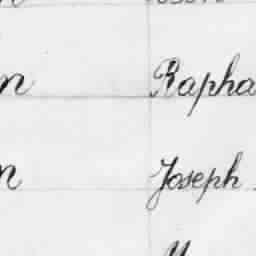 n Rapha
n Joseph